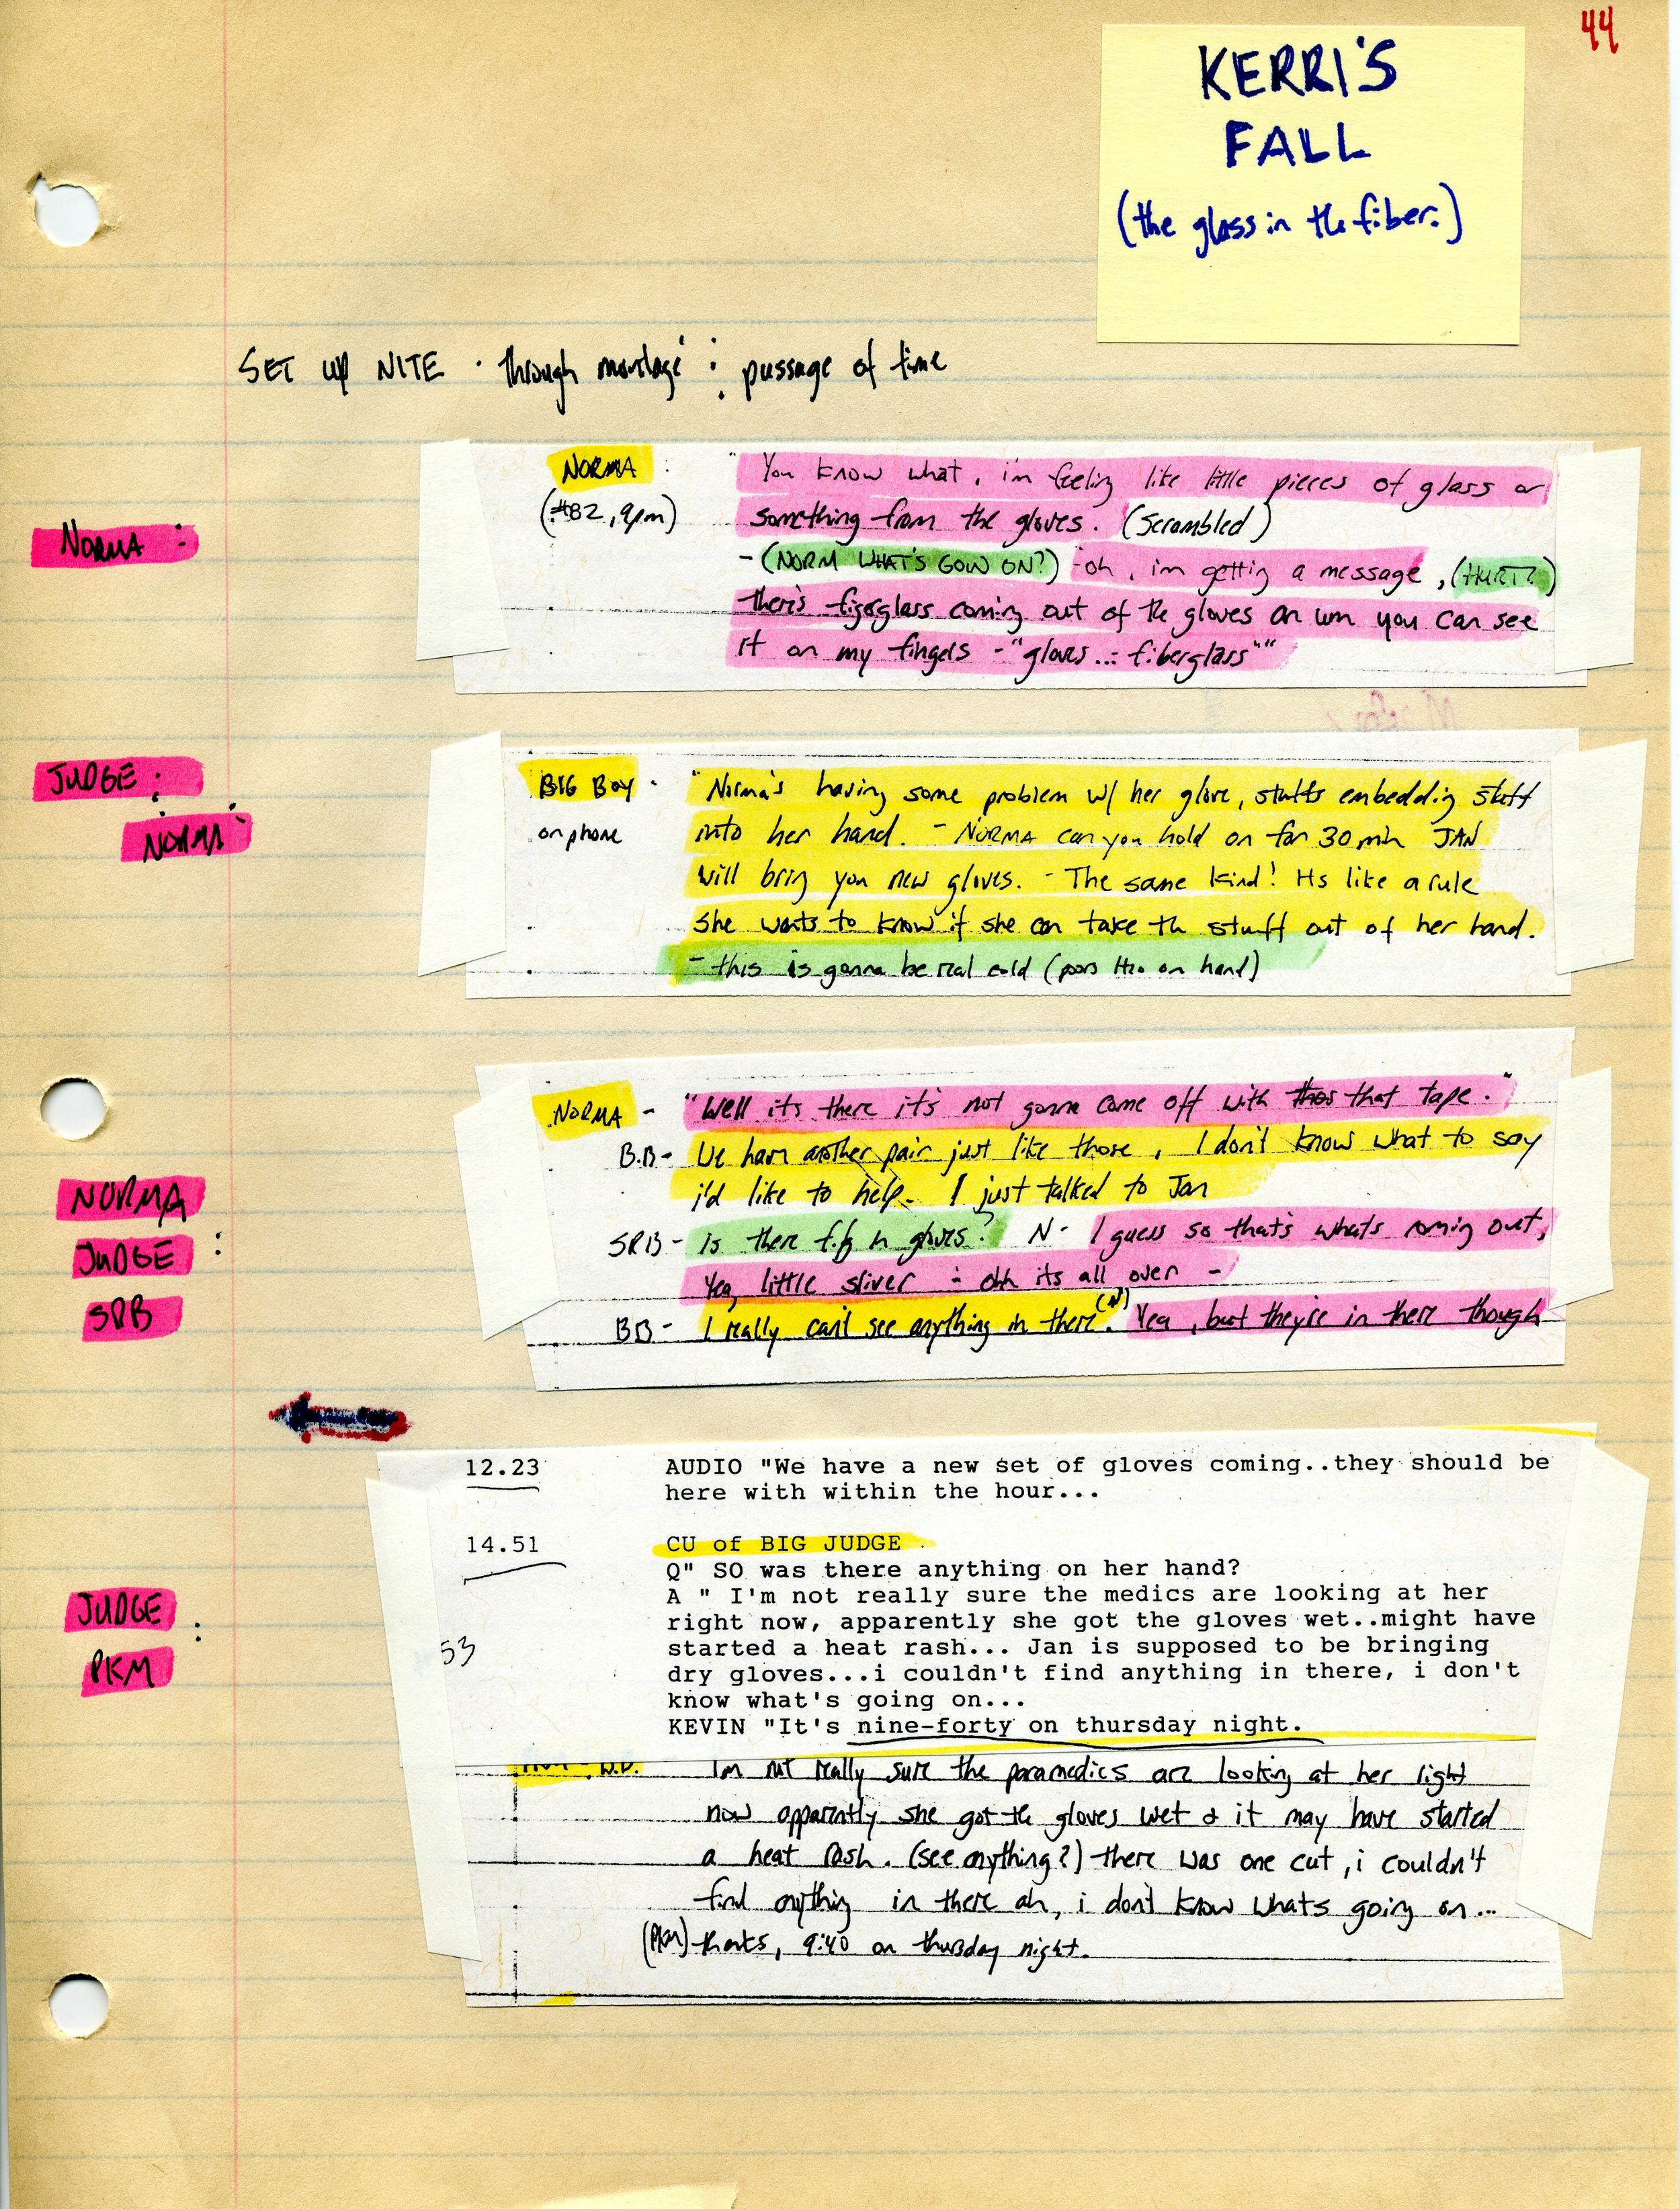 44
KERRI'S
FALL
(the glass in the fiber.)
SET UP NITE - through montage : passage of time
NORMA :
NORMA :
(#82, 9pm)
"You know what, i'm feeling like little pieces of glass or
something from the gloves. (scrambled)
- (NORM WHAT'S GOIN ON?) -oh, i'm getting a message, (HURT?)
there's figerglass coming out of the gloves an um you can see
it on my fingers - "gloves... fiberglass""
JUDGE :
NORMA
BIG BOY -
on phone
"Norma's having some problem w/ her glove, stuffs embedding stuff
into her hand. - NORMA can you hold on for 30 min JAN
will bring you new gloves. - The same kind! Its like a rule
she wants to know if she can take th stuff out of her hand.
- this is gonna be real cold (pours H2o on hand)
NORMA
JUDGE :
SRB
NORMA - "Well its there it's not gonna come off with that tape."
B.B - We have another pair just like those, I don't know what to say
i'd like to help. I just talked to Jan
SRB - is there f.g in gloves? N - I guess so that's whats coming out,
Yea, little sliver - ohh its all over -
BB - I really can't see anything in there. (N) Yea, but they're in there though
12.23 AUDIO "We have a new set of gloves coming..they should be
here with within the hour...
14.51 CU of BIG JUDGE
Q" SO was there anything on her hand?
A " I'm not really sure the medics are looking at her
right now, apparently she got the gloves wet..might have
started a heat rash... Jan is supposed to be bringing
dry gloves...i couldn't find anything in there, i don't
know what's going on...
KEVIN "It's nine-forty on thursday night.
JUDGE :
PKM
53
Im not really sure the paramedics are looking at her right
now apparently she got the gloves wet & it may have started
a heat rash. (see anything?) there was one cut, i couldn't
find anything in there ah, i don't know whats going on...
(PKM) thanks, 9:40 on thursday night.